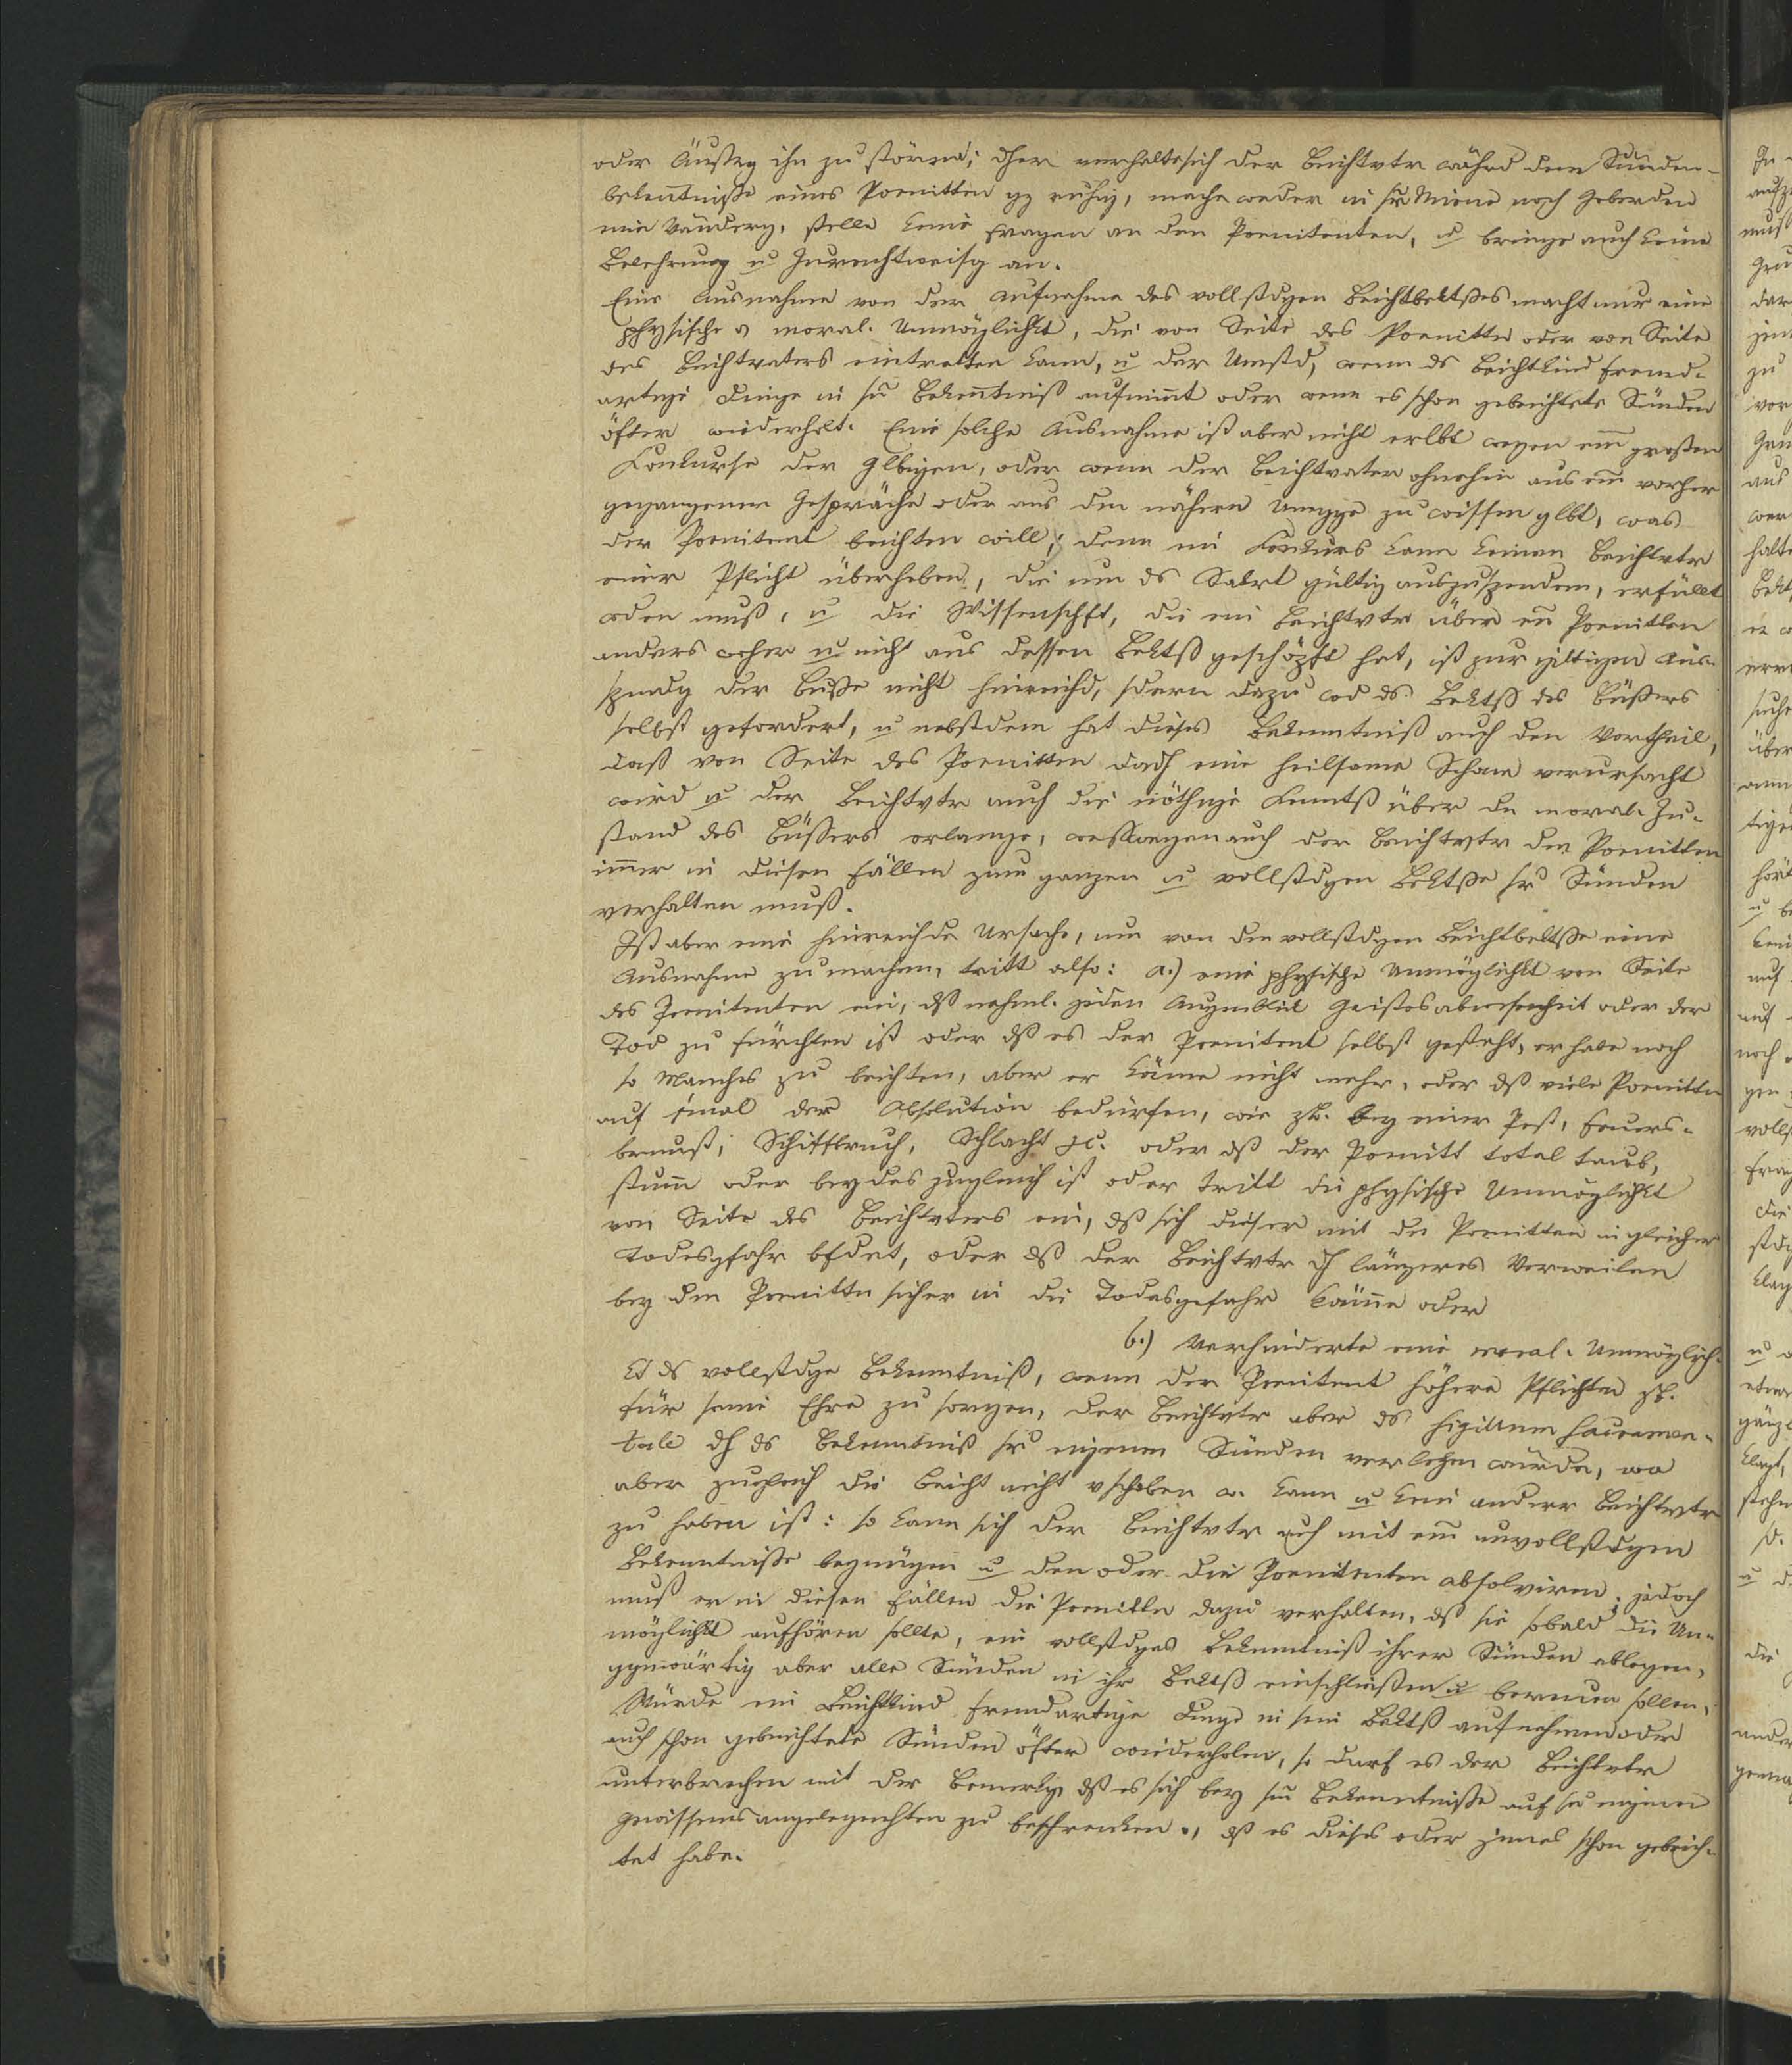 oder Äußrg ihn zu stören; dher verhalte sich der Beichtvtr währd dem Sünden-
bekentniße eines Poenitten gz ruhig, mache weder in sr Miene noch Geberden
eine Vänderg, stelle keine Fragen an den Poenitenten, u bringe auch keine
Belehrung u Zurechtweisg an.
Eine Ausnahme von der Aufnahme des vollstdgen Beichtbektßes macht nur eine
physische o moral. Unmöglichkt, die von Seite des Poenitten oder von Seite
des Beichtvaters eintretten kann, u der Umstd, wenn ds Beichtkind fremd-
artige Dinge in sn Bekentniß aufnimt oder wenn es schon gebeichtete Sünden
öfter wiederholt. Eine solche Ausnahme ist aber nicht erlbt wegen em großen
Konkurse der Glbigen, oder wenn der Beichtvater ohnehin aus em vorher
gegangenen Gespräche oder aus dem nähern Umgge zu wissen glbt, was
der Poenitent beichten will; denn ein Konkurs kann keinen Beichtvtr
einer Pflicht überheben, die um ds Sakrt gültig auszuspenden, erfüllt
wden muß, u die Wissenschft, die ein Beichtvtr über en Poenitten
anders woher u nicht aus dessen Bektß geschöpft hat, ist zur giltigen Aus-
spendg der Buße nicht hinreichd, sdern dazu wd ds Bektß des Büßers
selbst gefordert, u nebstdem hat dieses Bekenntniß auch den Vortheil,
daß von Seite des Poenitten dadh eine heilsame Scham verursacht
wird u der Beichtvtr auch die nöthige Kenntß über dn moral. Zu-
stand des Büssers erlange, weßwegen auch der Beichtvtr den Poenitten
imer in diesen Fällen zum ganzen u vollstdgen Bektße sr Sünden
verhalten muß.
Ist aber eine hinreichde Ursache, um von dem vollstdgen Beichtbektße eine
Ausnahme zu machen, tritt also: a.) eine physische Unmöglichkt von Seite
des Poenitenten ein, dß nehml. jeden Augenblik Geistesabwesenheit oder der
Tod zu fürchten ist oder dß es der Poenitent selbst gesteht, er habe noch
so Manches zu beichten, aber er könne nicht mehr, oder dß viele Poenitten
auf einmal der Absolution bedürfen, wie zB. bey einer Pest, Feuers-
brunst, Schiffbruch, Schlacht etc. oder dß der Poenitt total taub,
stum oder beydes zugleich ist oder tritt die physische Unmöglichkt
von Seite des Beichtvters ein, dß sich dieser mit dem Poenitten in gleicher
Todesgfahr bfdet, oder dß der Beichtvtr dh längeres Verweilen
bey dem Poenitten sicher in die Todesgefahr käme oder
b.) Verhinderte eine moral. Unmöglich-
kt ds vollstdge Bekenntniß, wenn der Poenitent höhere Pflichten zB.
für seine Ehre zu sorgen, der Beichtvtr aber ds sigillum sacramen-
tale dh ds Bekenntniß sr eigenen Sünden verletzen würde, wo
aber zugleich die Beicht nicht vschoben w. kann u kein anderer Beichtvtr
zu haben ist: so kann sich der Beichtvtr auch mit em unvollstdgen
Bekenntniße begnügen u den oder die Poenitenten absolviren; jedoch
muß er in diesen Fällen die Poenitten dazu verhalten, dß sie sobald die Un-
möglichkt aufhören sollte, ein vollstdges Bekenntniß ihrer Sünden ablegen,
ggenwärtig aber alle Sünden in ihr Bektß einschließen u bereuen sollen.
Würde ein Beichtkind fremdartige Dinge in sein Bektß aufnehmen oder
auch schon gebeichtete Sünden öfter wiederholen, so darf es der Beichtvtr
unterbrechen mit der Bemerkg, dß es sich bey sm Bekenntniße auf se eigenen
Gewissensangelegenhten zu beschrenken o, dß es dieses oder jenes schon gebeich-
tet habe.